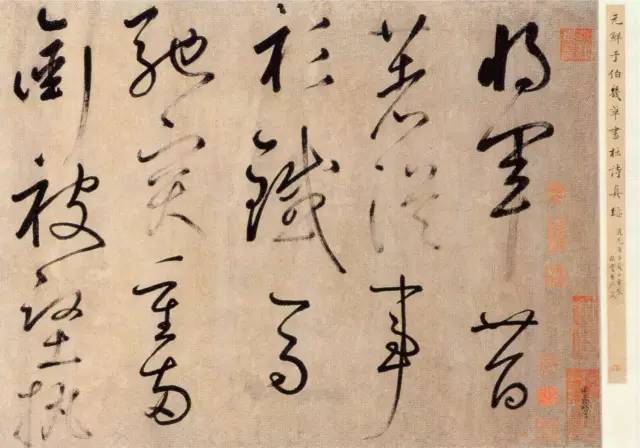 元鮮于伯幾草書杜詩真跡
將軍昔
著從事
衫鐵馬
馳突重兩
銜被堅執